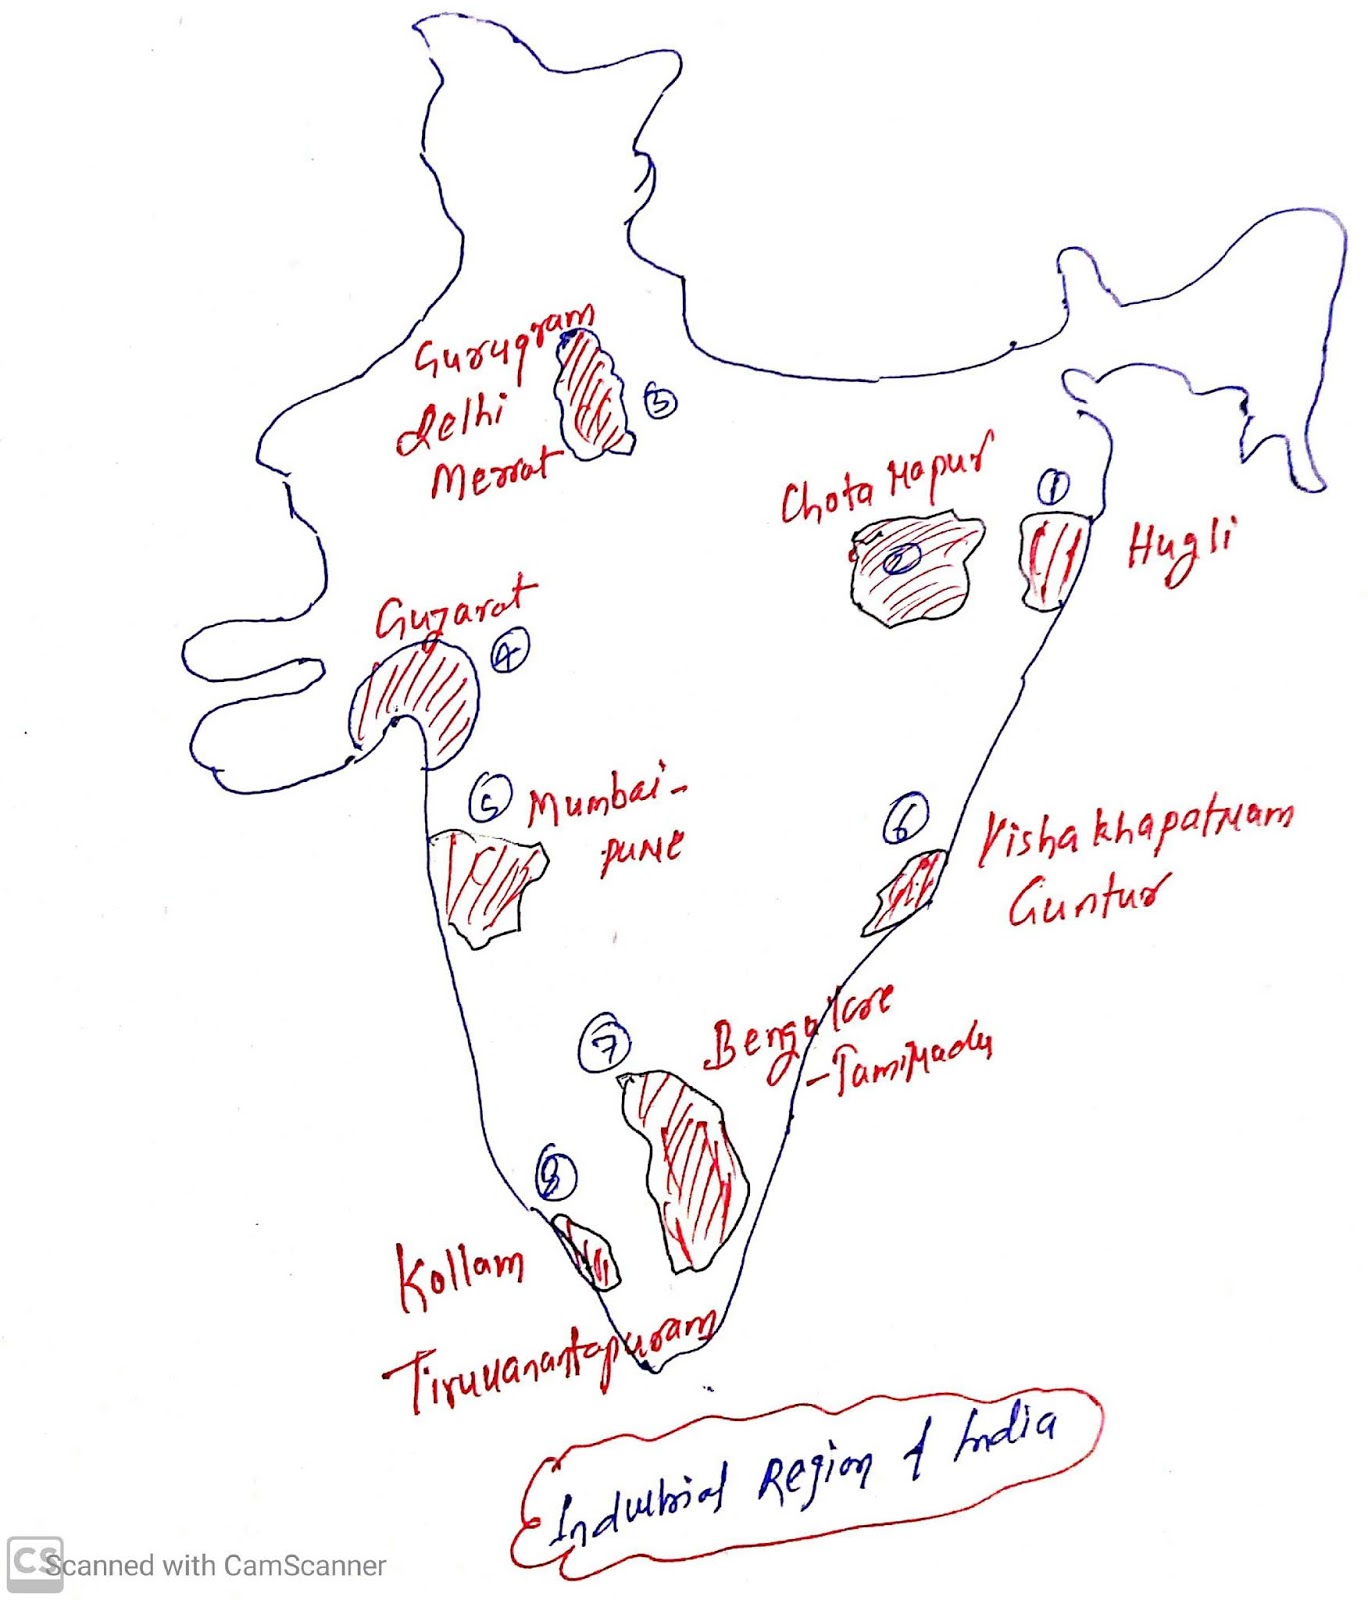 Gurugram
Delhi
Merrat
3
Chota Napur
2
1
Hugli
Gujarat
4
5
Mumbai-
PUNE
6
Vishakhapatnam
Guntur
7
Bengalore
-Tamilnadu
8
Kollam
Tiruvanantapuram
Industrial Region of India
CS
Scanned with CamScanner